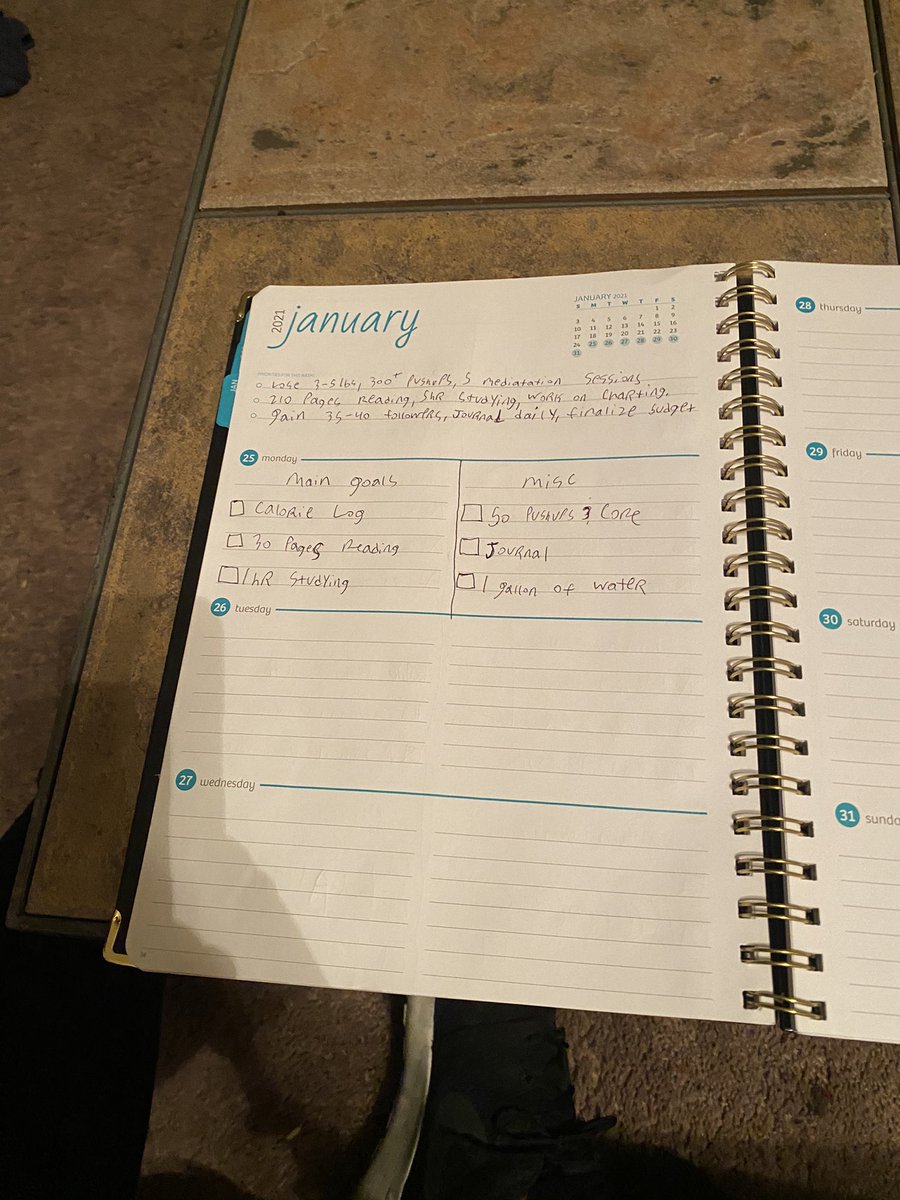 2021 january
JANUARY 2021
S M T W T F S
1 2
3 4 5 6 7 8 9
10 11 12 13 14 15 16
17 18 19 20 21 22 23
24 25 26 27 28 29 30
31
JAN
PRIORITIES FOR THIS WEEK:
Lose 3-5 lbs, 300+ Pushups, 5 mediatation Sessions
210 Pages Reading, 5hR Studying, work on Charting.
gain 35-40 followers, Journal daily, finalize budget
25 monday
main goals
Calorie Log
30 Pages Reading
1hR Studying
misc
50 Pushups & Core
Journal
1 gallon of water
26 tuesday
27 wednesday
28 thursday
29 friday
30 saturday
31 sunda